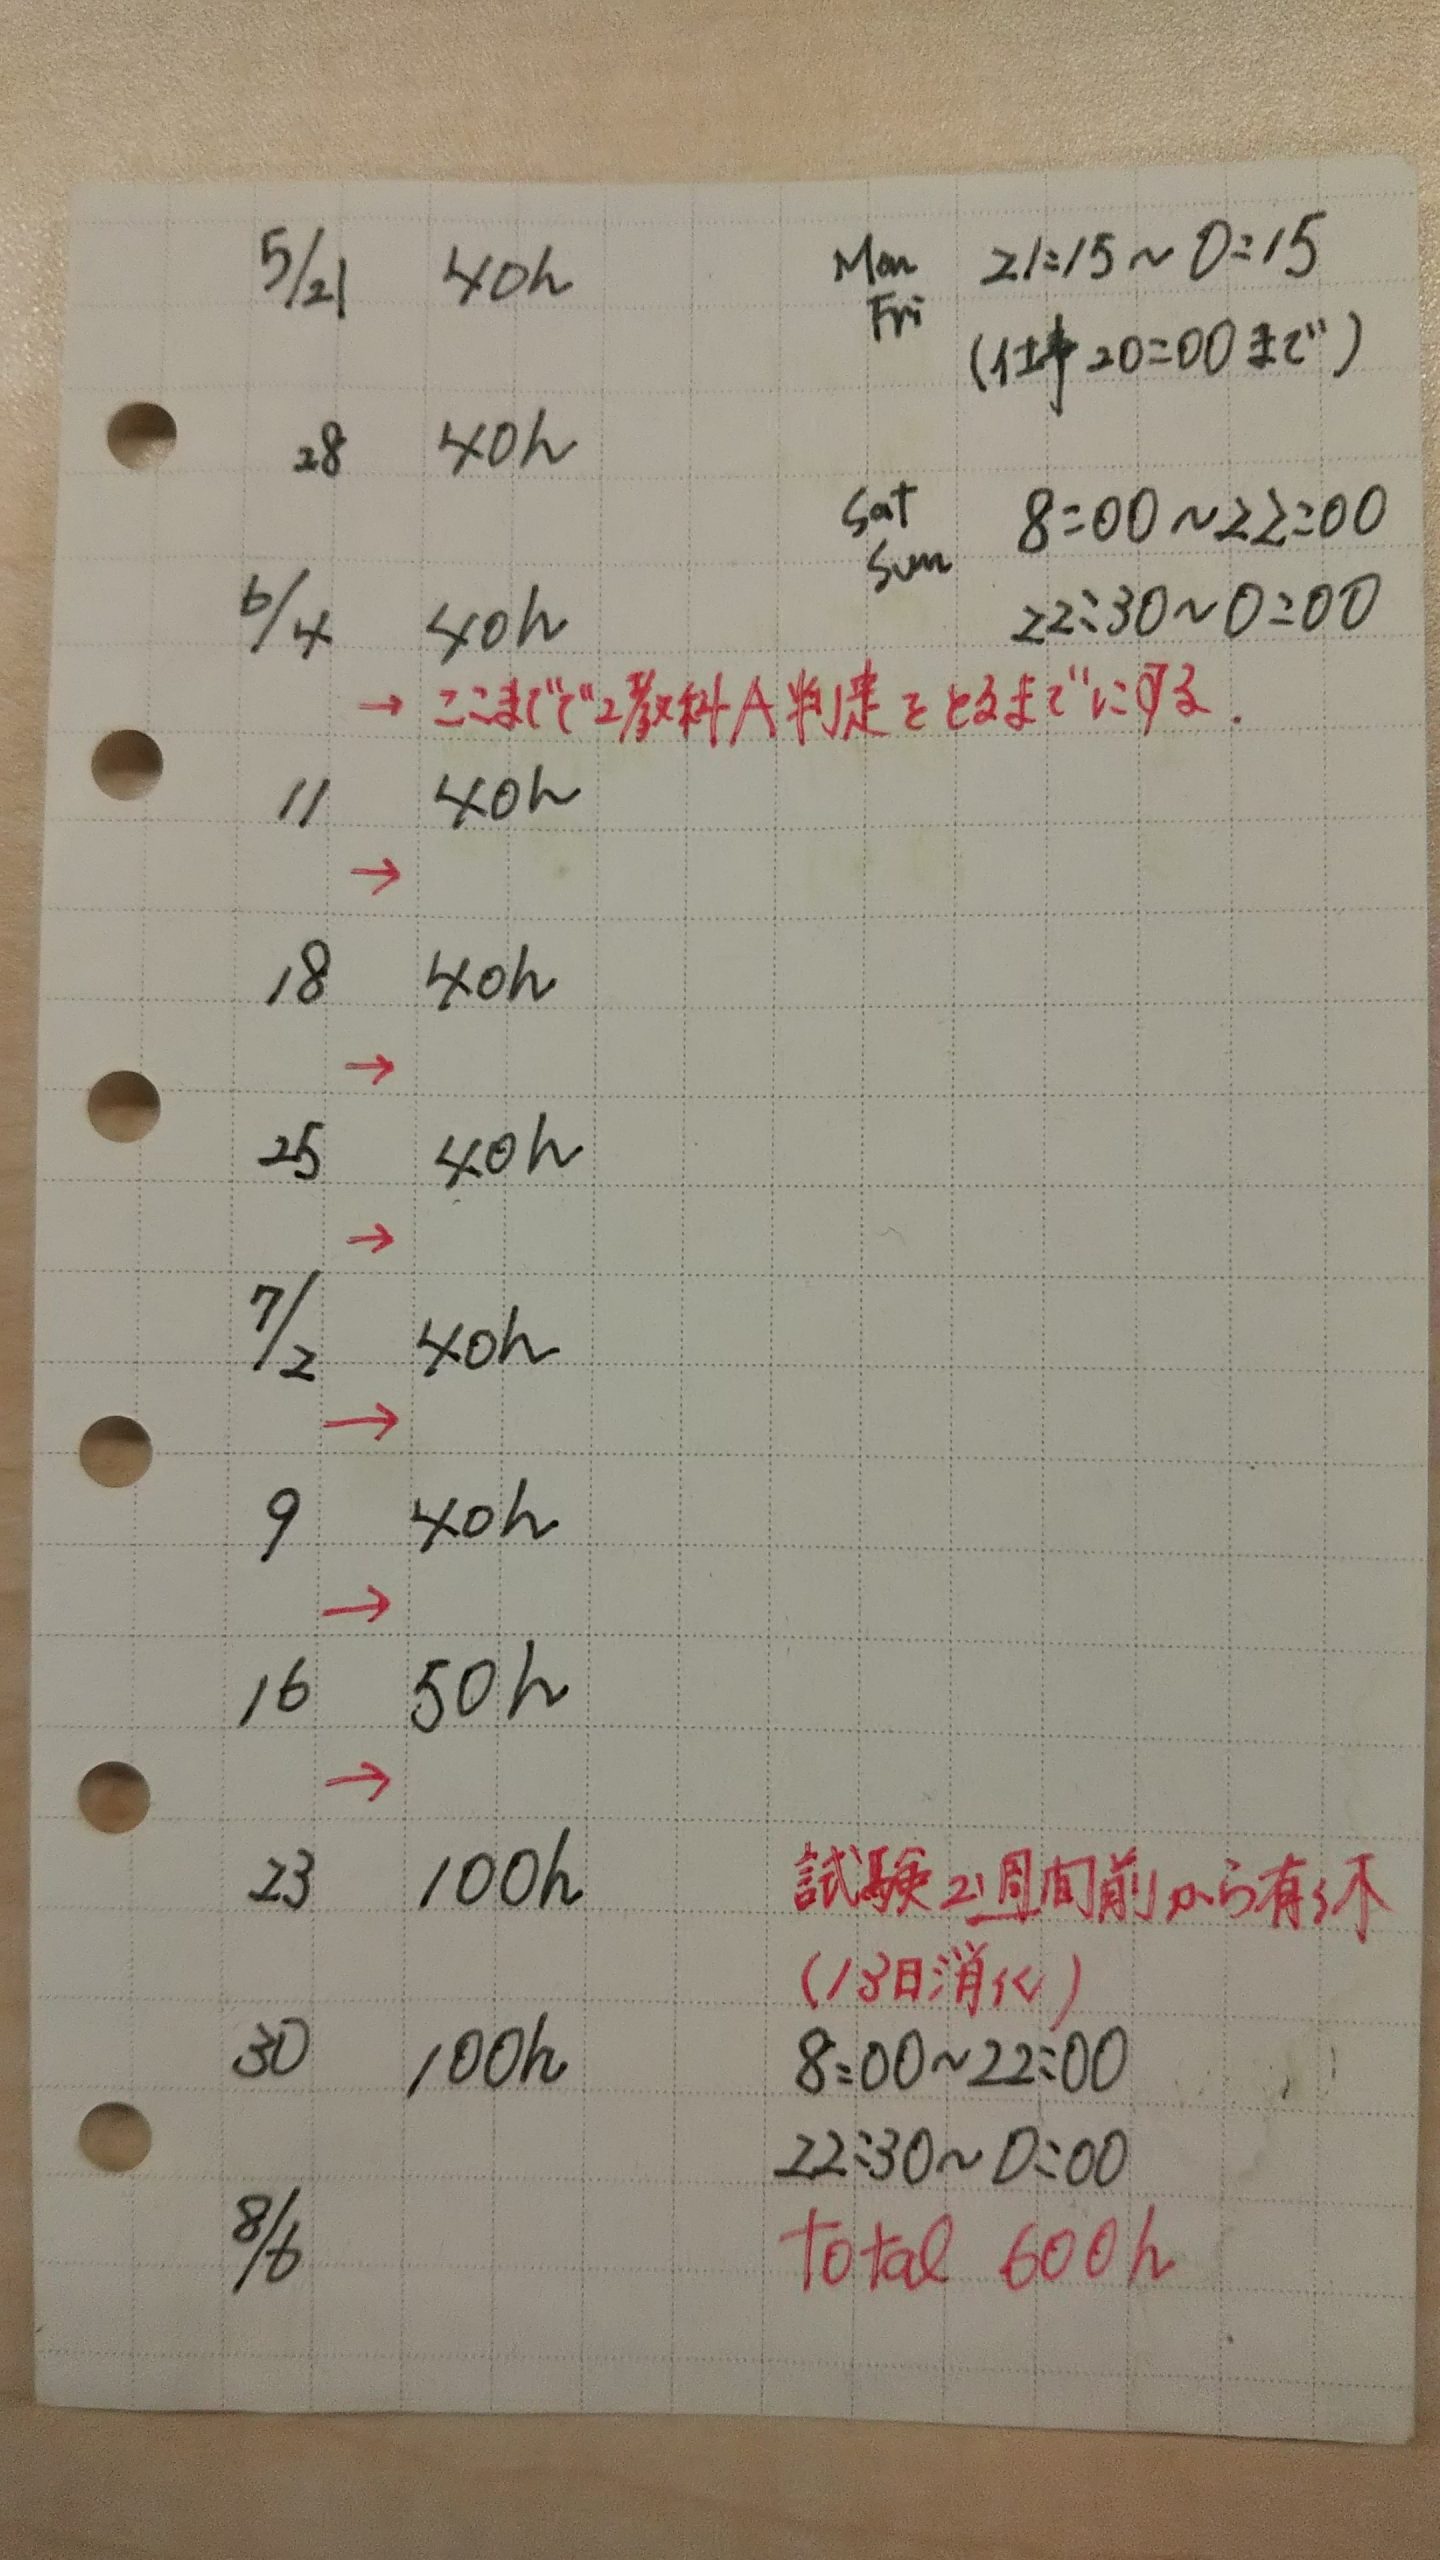 5/21 40h Mon 21:15～0:15
Fri (仕事20:00まで)
28 40h
Sat 8:00～22:00
Sun 22:30～0:00
6/4 40h
→ ここまでで2教科A判定をとるまでにする.
11 40h
→
18 40h
→
25 40h
→
7/2 40h
→
9 40h
→
16 50h
→
23 100h 試験2週間前から有休
(13日消化)
30 100h 8:00～22:00
22:30～0:00
8/6 Total 600h